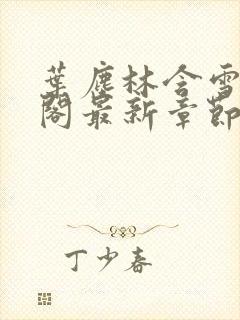 葉塵林含雪
閣最新章節
丁少春